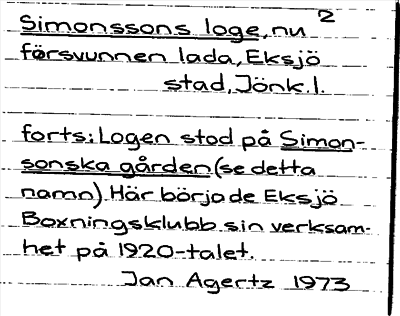 2
Simonssons loge, nu
försvunnen lada, Eksjö
stad, Jönk.l.
forts: Logen stod på Simon-
sonska gården (se detta
namn). Här började Eksjö
Boxningsklubb sin verksam-
het på 1920-talet.
Jan Agertz 1973